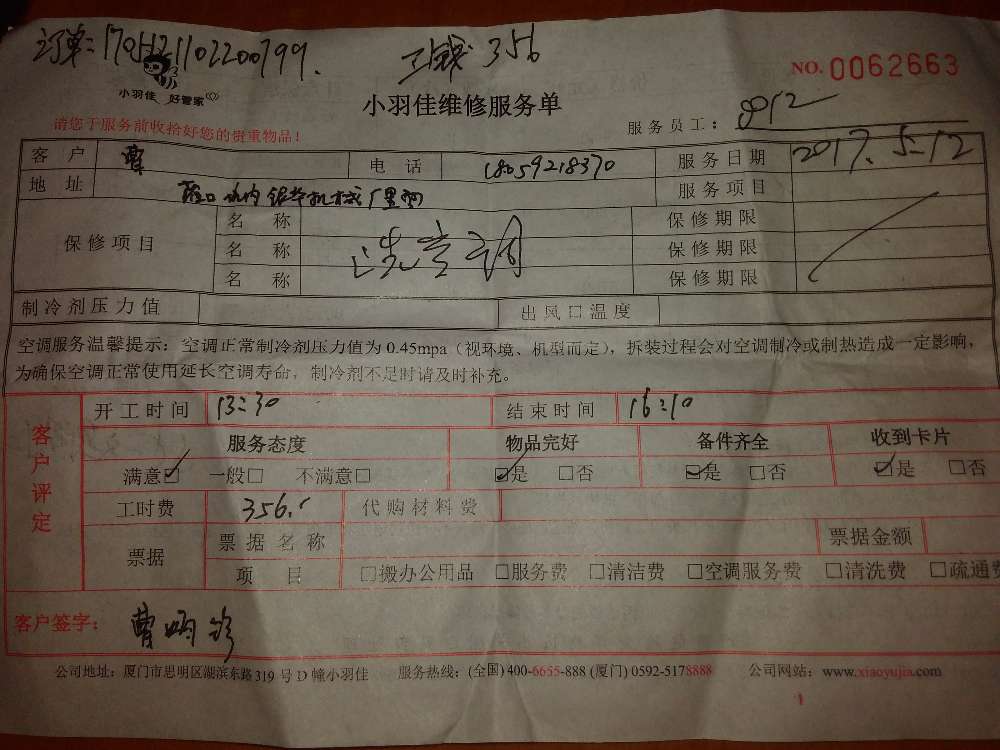 订单:1705121102200799.
工钱 356
NO. 0062663
小羽佳 好管家
小羽佳维修服务单
请您于服务前收拾好您的贵重物品!
服务员工: 8912
客户 曹 电话 18059218370 服务日期 2017.5.12
地址 服务项目
保修项目 名称 洗空调 保修期限
名称 保修期限
名称 保修期限
制冷剂压力值 出风口温度
空调服务温馨提示:空调正常制冷剂压力值为0.45mpa(视环境、机型而定),拆装过程会对空调制冷或制热造成一定影响,
为确保空调正常使用延长空调寿命,制冷剂不足时请及时补充。
客户评定
开工时间 13:30 结束时间 16:10
服务态度 物品完好 备件齐全 收到卡片
满意☑ 一般□ 不满意□ ☑是 □否 ☑是 □否 ☑是 □否
工时费 356. 代购材料费
票据 票据名称 票据金额
项目 □搬办公用品 □服务费 □清洁费 □空调服务费 □清洗费 □疏通费
客户签字: 曹
公司地址:厦门市思明区湖滨东路319号D幢小羽佳 服务热线:(全国)400-6655-888 (厦门) 0592-5178888 公司网站:www.xiaoyujia.com